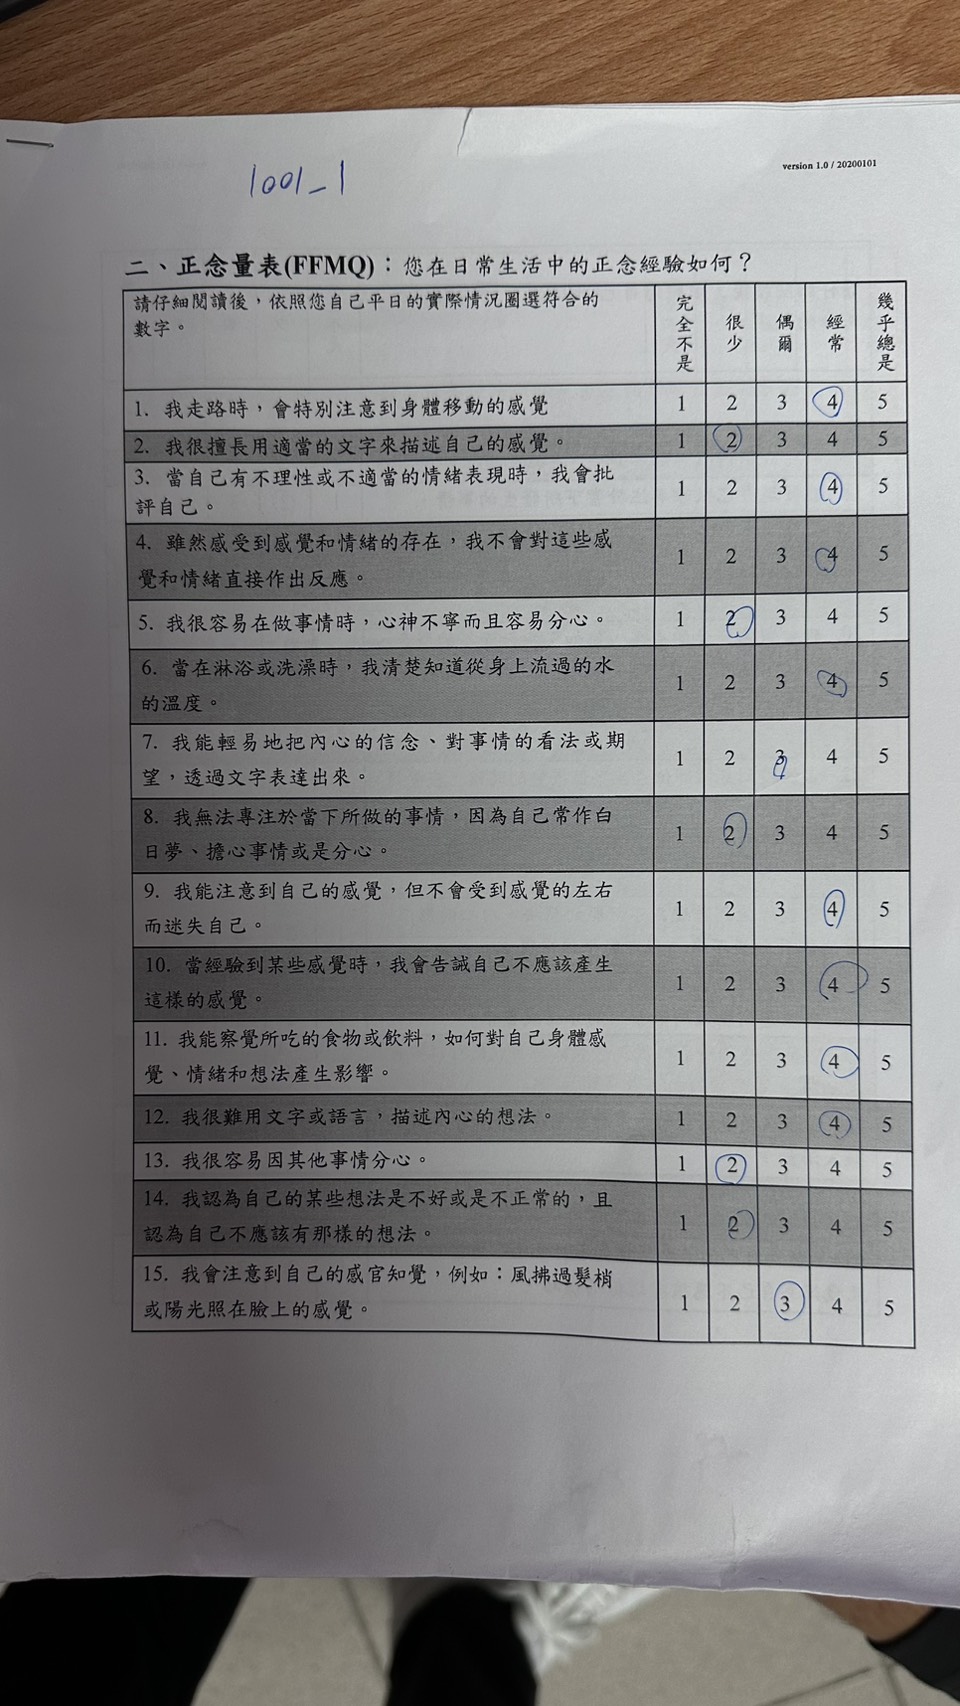 version 1.0 / 20200101
1001_1
二、正念量表(FFMQ)：您在日常生活中的正念經驗如何？
請仔細閱讀後，依照您自己平日的實際情況圈選符合的
數字。
完全不是 很少 偶爾 經常 幾乎總是
1. 我走路時，會特別注意到身體移動的感覺 1 2 3 4 5
2. 我很擅長用適當的文字來描述自己的感覺。 1 2 3 4 5
3. 當自己有不理性或不適當的情緒表現時，我會批
評自己。 1 2 3 4 5
4. 雖然感受到感覺和情緒的存在，我不會對這些感
覺和情緒直接作出反應。 1 2 3 4 5
5. 我很容易在做事情時，心神不寧而且容易分心。 1 2 3 4 5
6. 當在淋浴或洗澡時，我清楚知道從身上流過的水
的溫度。 1 2 3 4 5
7. 我能輕易地把內心的信念、對事情的看法或期
望，透過文字表達出來。 1 2 3 4 5
8. 我無法專注於當下所做的事情，因為自己常作白
日夢、擔心事情或是分心。 1 2 3 4 5
9. 我能注意到自己的感覺，但不會受到感覺的左右
而迷失自己。 1 2 3 4 5
10. 當經驗到某些感覺時，我會告誡自己不應該產生
這樣的感覺。 1 2 3 4 5
11. 我能察覺所吃的食物或飲料，如何對自己身體感
覺、情緒和想法產生影響。 1 2 3 4 5
12. 我很難用文字或語言，描述內心的想法。 1 2 3 4 5
13. 我很容易因其他事情分心。 1 2 3 4 5
14. 我認為自己的某些想法是不好或是不正常的，且
認為自己不應該有那樣的想法。 1 2 3 4 5
15. 我會注意到自己的感官知覺，例如：風拂過髮梢
或陽光照在臉上的感覺。 1 2 3 4 5